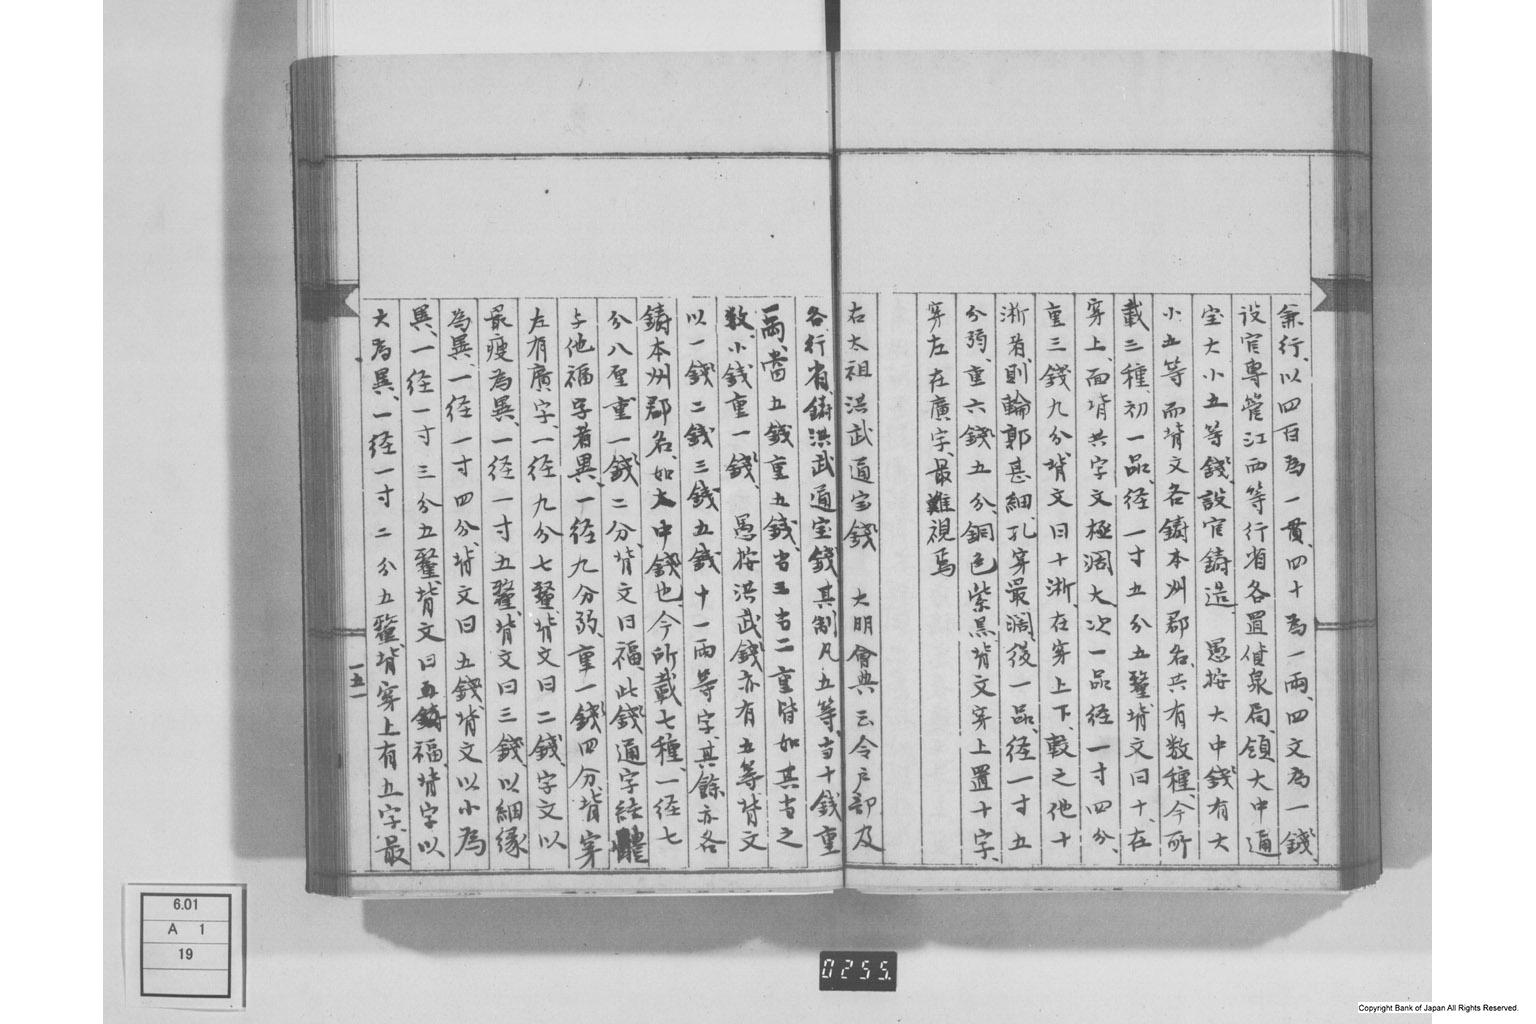 兼行、以四百為一貫、四十為一兩、四文為一錢
設官専管江西等行省各置貨泉局、領大中通
宝大小五等錢、設官鋳造、 愚按大中錢有大
小五等而背文各鋳本州郡名、共有数種、今所
載二種、初一品、径一寸五分五釐、背文曰十、在
穿上、面背共字文極濶大、次一品径一寸四分、
重三錢九分、背文曰十浙、在穿上下、較之他十
浙者、則輪郭甚細孔穿最濶、後一品、径一寸五
分弱、重六錢五分、銅色紫黒、背文穿上置十字、
穿左在廣字、最難視焉
右太祖洪武通宝錢 大明會典云令戸部及
各行省鋳洪武通宝錢其制凡五等、当十錢重
一兩、當五錢重五錢、当三当二重皆如其当之
数、小錢重一錢、 愚按洪武錢亦有五等背文
以一錢二錢三錢五錢十一兩等字、其餘亦各
鋳本州郡名、如大中錢也、今所載七種、一径七
分八厘重一錢二分、背文曰福、此錢通字経體
与他福字者異、一径九分弱、重一錢四分、背穿
左有廣字、一径九分七釐、背文曰二錢、字文以
最痩為異、一径一寸五釐、背文曰三錢、以細縁
為異、一径一寸四分、背文曰五錢、背文以小為
異、一径一寸三分五釐、背文曰五錢福、背字以
大為異、一径一寸二分五釐、背穿上有五字、最
一五一
6.01
A 1
19
0255.
Copyright Bank of Japan All Rights Reserved.